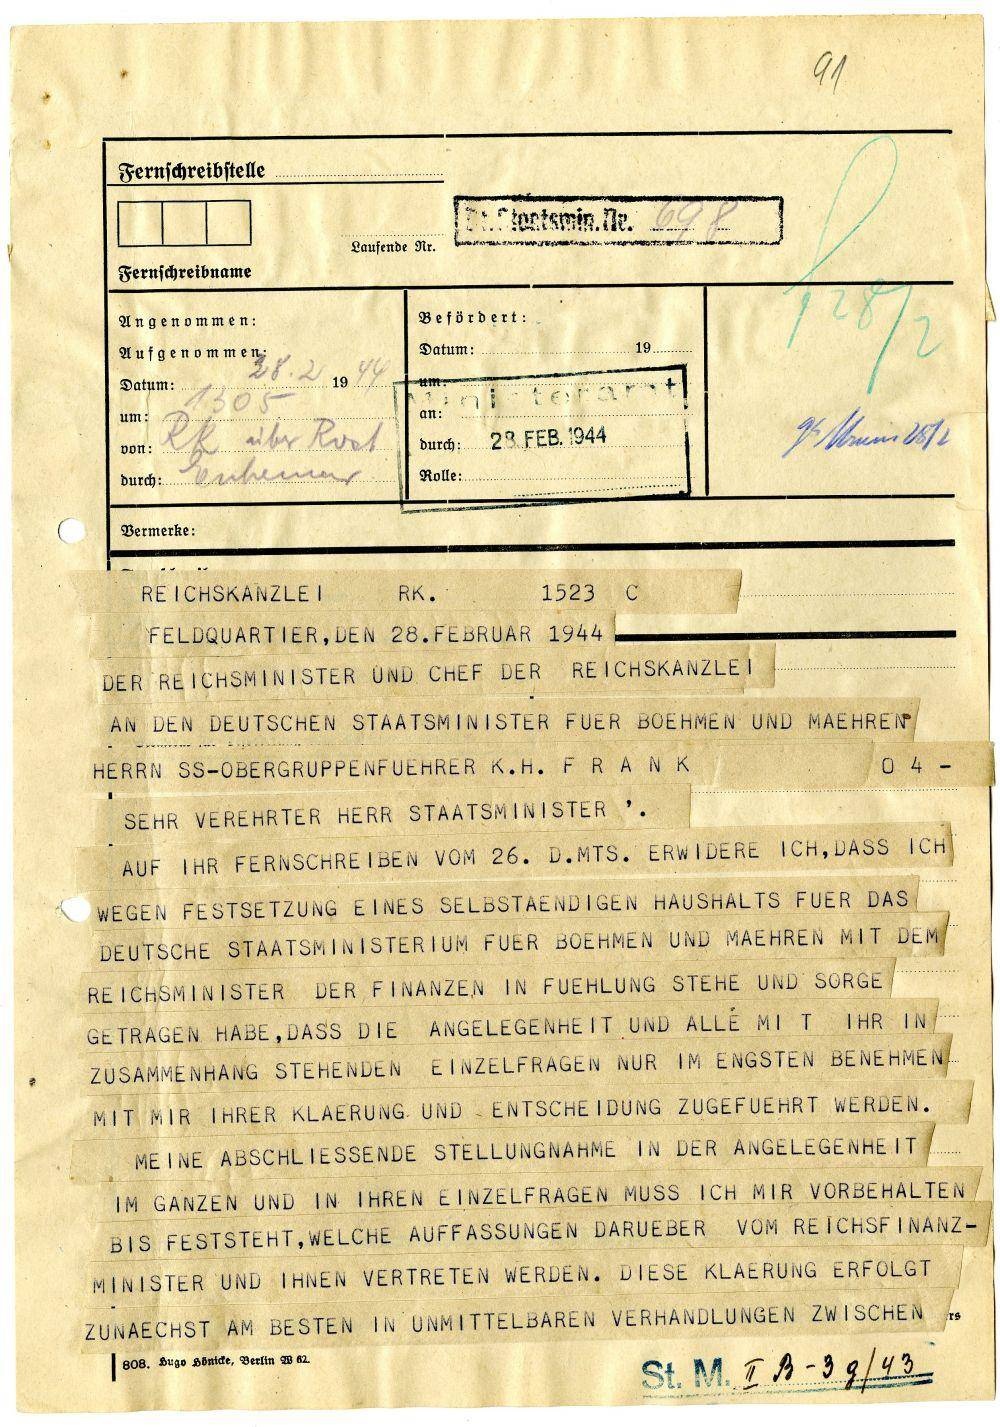 91
Fernschreibstelle
Dt. Staatsmin. Nr. 698
Laufende Nr.
Fernschreibname
Angenommen:
Aufgenommen:
Datum: 28.2 1944
um: 1305
von: RK über Rost
durch:
Befördert:
Datum: 19
um:
an:
durch:
Rolle:
Ministeramt
28. FEB. 1944
28/2
28/2
Vermerke:
REICHSKANZLEI RK. 1523 C
FELDQUARTIER,DEN 28.FEBRUAR 1944
DER REICHSMINISTER UND CHEF DER REICHSKANZLEI
AN DEN DEUTSCHEN STAATSMINISTER FUER BOEHMEN UND MAEHREN
HERRN SS-OBERGRUPPENFUEHRER K.H. F R A N K O 4 -
SEHR VEREHRTER HERR STAATSMINISTER '.
AUF IHR FERNSCHREIBEN VOM 26. D.MTS. ERWIDERE ICH,DASS ICH
WEGEN FESTSETZUNG EINES SELBSTAENDIGEN HAUSHALTS FUER DAS
DEUTSCHE STAATSMINISTERIUM FUER BOEHMEN UND MAEHREN MIT DEM
REICHSMINISTER DER FINANZEN IN FUEHLUNG STEHE UND SORGE
GETRAGEN HABE,DASS DIE ANGELEGENHEIT UND ALLE MI T IHR IN
ZUSAMMENHANG STEHENDEN EINZELFRAGEN NUR IM ENGSTEN BENEHMEN
MIT MIR IHRER KLAERUNG UND ENTSCHEIDUNG ZUGEFUEHRT WERDEN.
MEINE ABSCHLIESSENDE STELLUNGNAHME IN DER ANGELEGENHEIT
IM GANZEN UND IN IHREN EINZELFRAGEN MUSS ICH MIR VORBEHALTEN
BIS FESTSTEHT,WELCHE AUFFASSUNGEN DARUEBER VOM REICHSFINANZ-
MINISTER UND IHNEN VERTRETEN WERDEN. DIESE KLAERUNG ERFOLGT
ZUNAECHST AM BESTEN IN UNMITTELBAREN VERHANDLUNGEN ZWISCHEN
808. Hugo Hönicke, Berlin W 62.
St. M. II B-3g/43